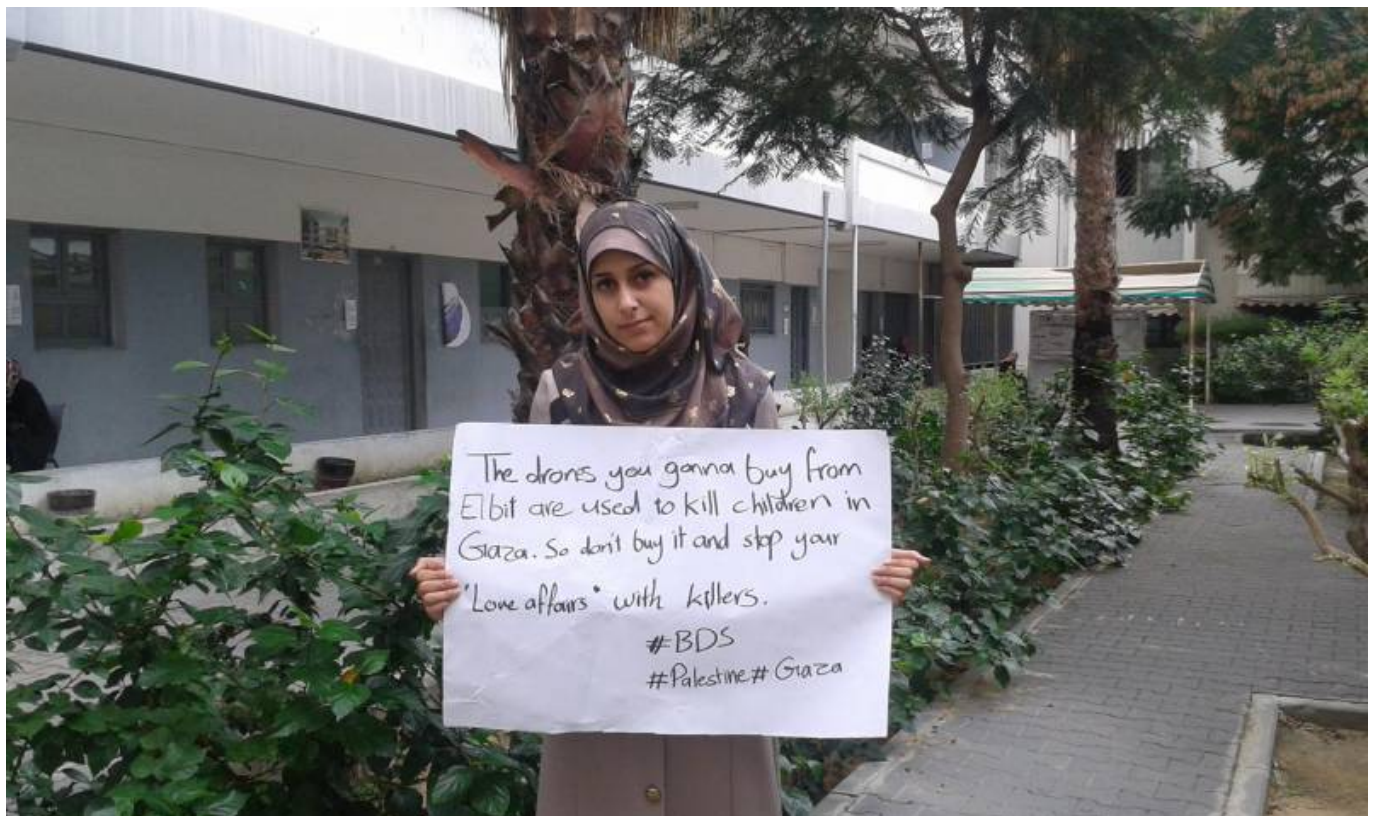 The drones you gonna buy from
Elbit are used to kill children in
Gaza. So don't buy it and stop your
"Love affairs" with killers.
#BDS
#Palestine # Gaza